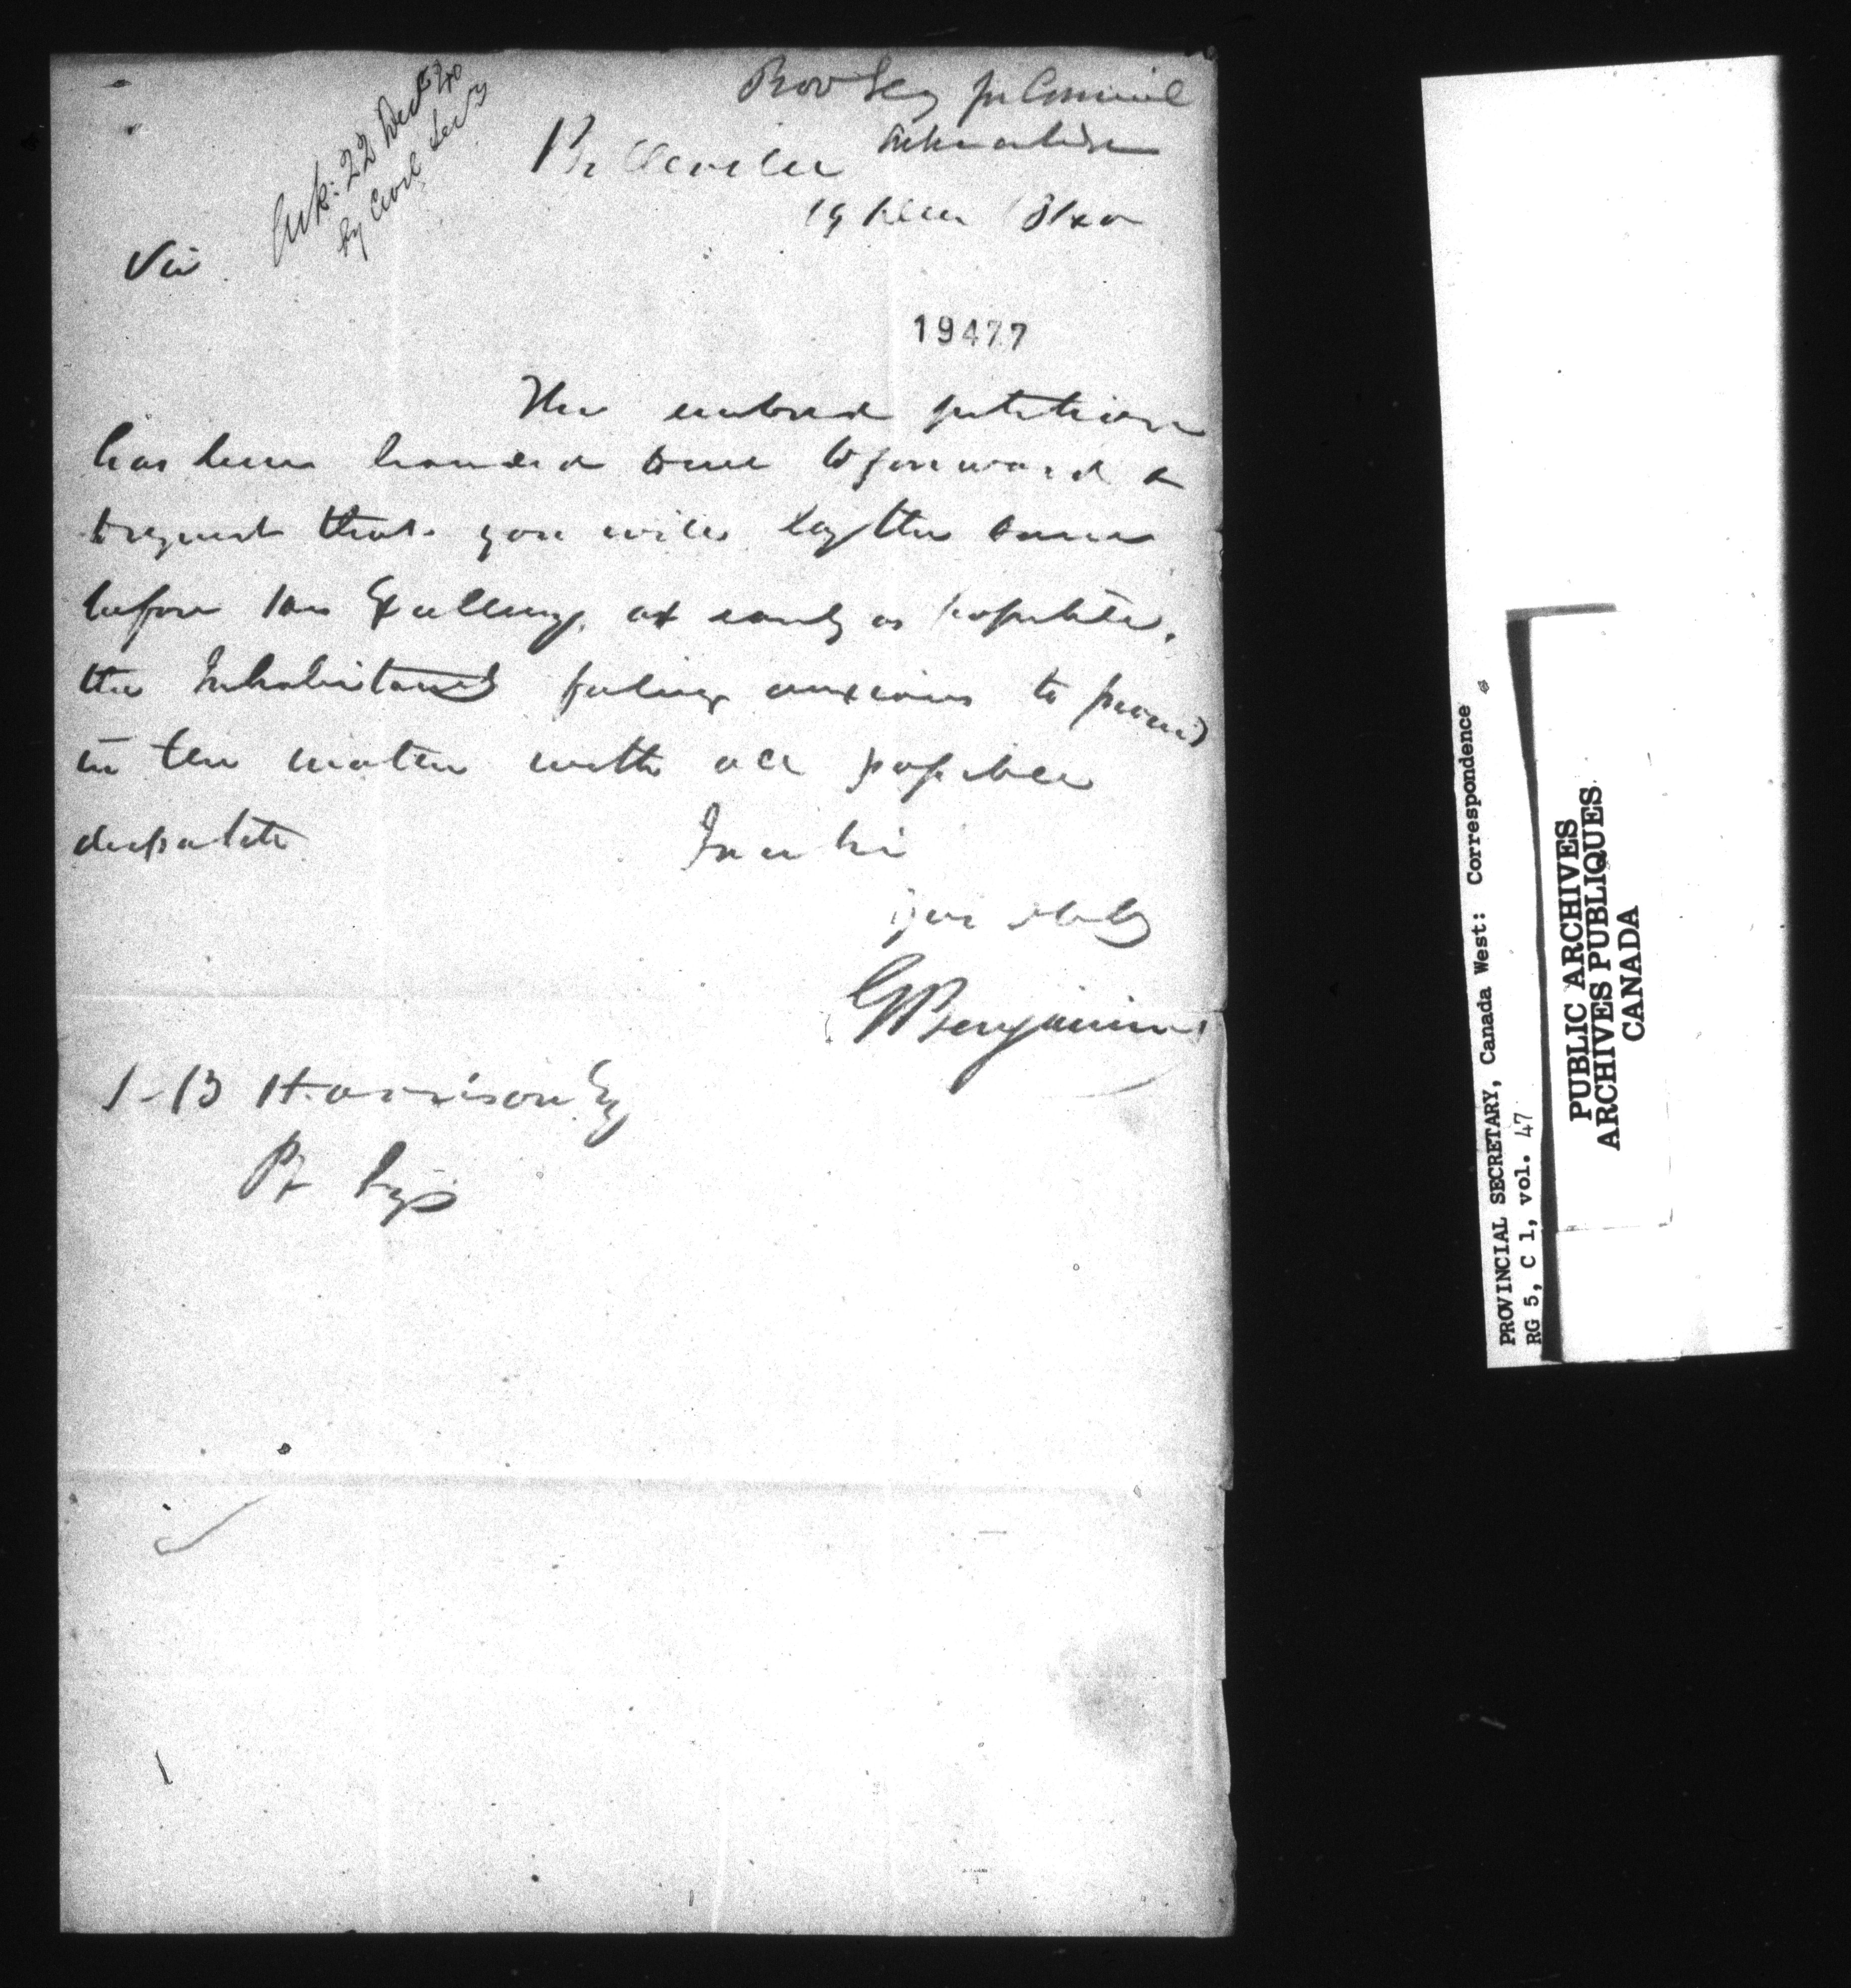 Ack: 22 Decr 40
by Civil Secy
Prov Secy for Council
Belleville
19 Decr 1840
Sir
19477
The enclosed petition
has been handed to me to forward &
to request that you will lay the same
before His Excellency, as early as possible,
the Inhabitants feeling anxious to proceed
in the matter with all possible
dispatch
I am Sir
your obdt
G Benjamin
S B Harrison Esq
PROVINCIAL SECRETARY, Canada West: Correspondence
RG 5, C 1, vol. 47
PUBLIC ARCHIVES
ARCHIVES PUBLIQUES
CANADA